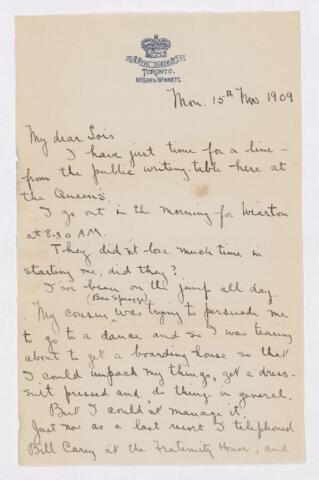 THE QUEEN'S
TORONTO.
McGAW & WINNETT.
Mon. 15th Nov. 1909
My dear Lois
I have just time for a line -
from the public writing-table here at
the Queen's.
I go out in the morning for Wiarton
at 8.30 AM.
They didn't lose much time in
starting me, did they?
I've been on the jump all day.
(Bee Spragge)
My cousin was trying to persuade me
to go to a dance and so I was tearing
about to get a boarding-house so that
I could unpack my things, get a dress-
suit pressed and do things in general.
But I couldn't manage it.
Just now as a last resort I telephoned
Bill Carey at the Fraternity House, and